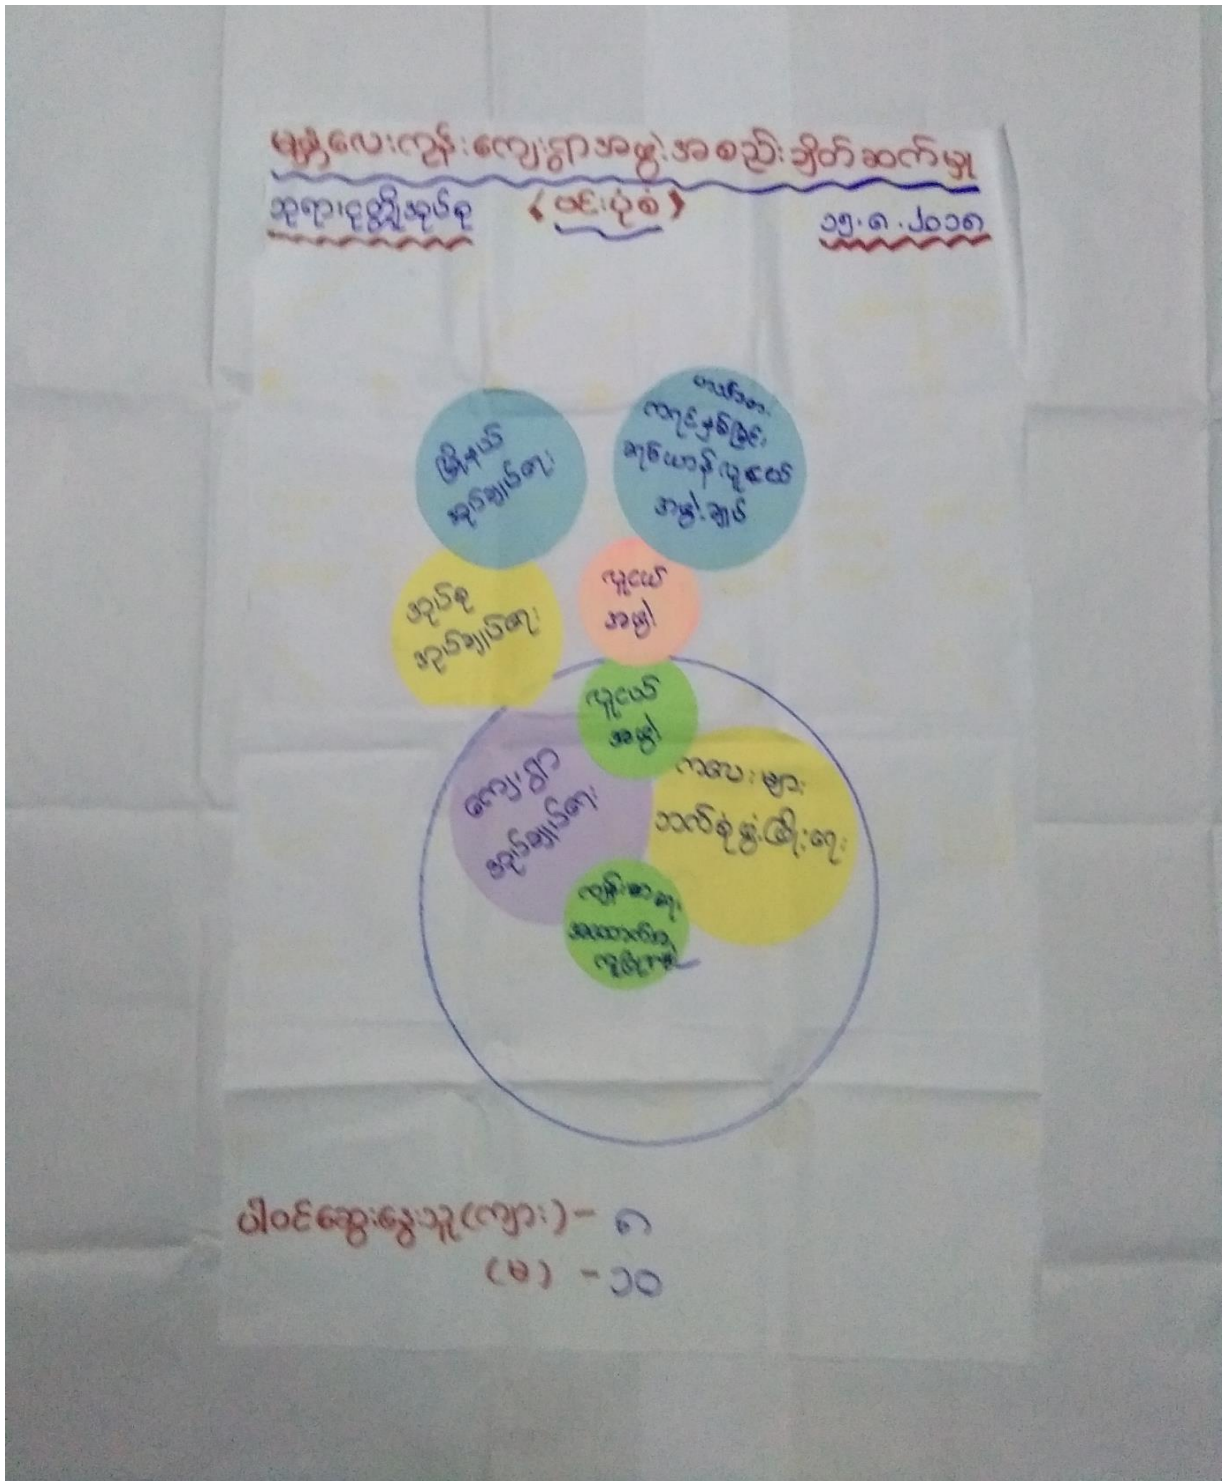 မန္တလေးကုန်းကျေးရွာအဖွဲ့အစည်းချိတ်ဆက်မှု
ဘုရားငုတ္တိုအုပ်စု (ဝင်းပုံစံ) ၁၅.၈.၂၀၁၈
မြို့နယ်
အုပ်ချုပ်ရေး
ကရင်နှစ်ခြင်း
ခရစ်ယာန်လူငယ်
အဖွဲ့ချုပ်
အုပ်စု
အုပ်ချုပ်ရေး
လူငယ်
အဖွဲ့
လူငယ်
အဖွဲ့
ကျေးရွာ
အုပ်ချုပ်ရေး
ကလေးများ
ဘက်စုံဖွံ့ဖြိုးရေး
ကျန်းမာရေး
အထောက်အ
ကူပြုကော်
ပါဝင်ဆွေးနွေးသူ(ကျား) - ၈
(မ) - ၁၀